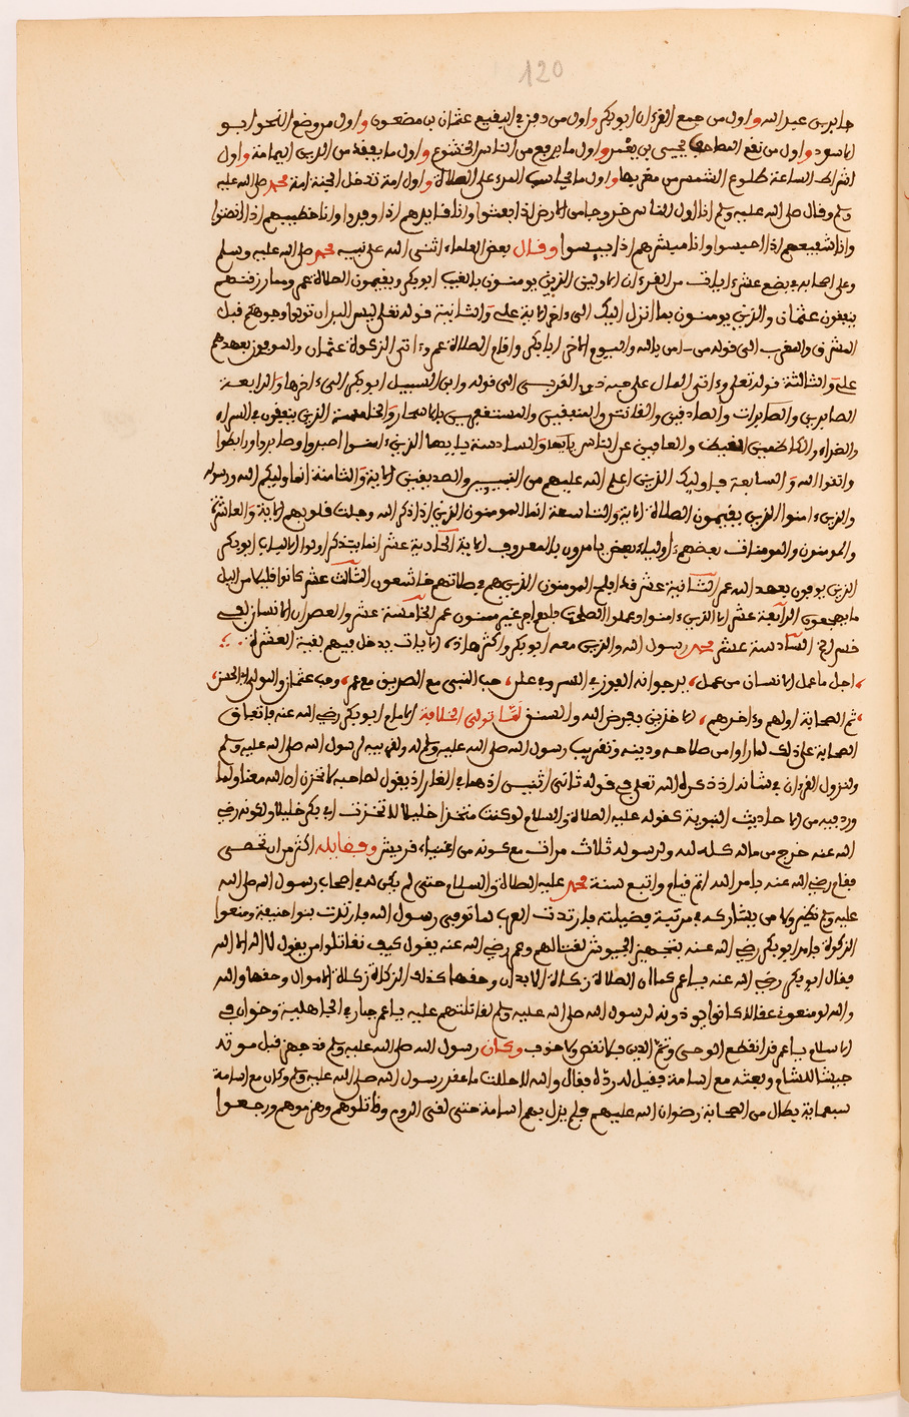 120
جابر بن عبد الله واول من جمع القرءان ابو بكر واول من دفن في البقيع عثمان بن مضعون واول من وضع النحو ابو
الاسود واول من نقع المصاحب يحيى بن يعمر واول ما يرفع من الناس الخشوع واول ما يفقد من الدين الامانة واول
اشراط الساعة طلوع الشمس من مغربها واول ما يحاسب المرء على الصلاة واول امة تدخل الجنة امة محمد صلى الله عليه
وسلم وقال صلى الله عليه وسلم انا اول الناس خروجا من الارض اذا بعثوا وانا قايدهم اذا وفدوا وانا خطيبهم اذا انصتوا
وانا شفيعهم اذا احبسوا وانا مبشرهم اذا يبسوا وقال بعض العلماء اثنى الله على نبيه محمد صلى الله عليه وسلم
وعلى اصحابه في بضع عشر ءايات من القرءان الاولى الذين يومنون بالغيب ابو بكر ويقيمون الصلاة عمر ومما رزقنهم
ينفقون عثمان والذين يومنون بما انزل اليك الى ءاخر الاية علي والثانية قوله تعلى ليس البر ان تولوا وجوهكم قبل
المشرق والمغرب الى قوله من ءامن بالله واليوم الاخر ابا بكر واقام الصلاة عمر وءاتى الزكوة عثمان والموفون بعهدهم
علي والثالثة قوله تعلى وءاتى المال على حبه ذوي القربى الى قوله وابن السبيل ابو بكر الى ءاخرها والرابعة
الصابرين والصابرات والصادقين والقانتين والمنفقين والمستغفرين بالاسحار والخامسة الذين ينفقون في السراء
والضراء والكاظمين الغيظ والعافين عن الناس والسادسة يايها الذين ءامنوا اصبروا وصابروا ورابطوا
واتقوا الله والسابعة فاوليك الذين انعم الله عليهم من النبيين والصديقين الاية والثامنة انما وليكم الله ورسوله
والذين ءامنوا الذين يقيمون الصلاة الاية والتاسعة انما المومنون الذين اذا ذكر الله وجلت قلوبهم الاية والعاشرة
والمومنون والمومنات بعضهم اولياء بعض يامرون بالمعروف الاية الحادية عشر انما يتذكر اولوا الالباب ابو بكر
الذين يوفون بعهد الله عمر الثانية عشر قد افلح المومنون الذين هم في صلاتهم خاشعون الثالث عشر كانوا قليلا من اليل
ما يهجعون الرابعة عشر الا الذين ءامنوا وعملوا الصلحت فلهم اجر غير ممنون عمر الخامسة عشر والعصر ان الانسان لفي
خسر الخ السادسة عشر محمد رسول الله والذين معه ابو بكر واكثر هاذه الايات يدخل فيهم بقية العشرة
اجل ما عمل الانسان من عمل، يرجوا به الفوز في السر وفي علن، حب النبي مع الصديق مع عمر، وحب عثمان والمولى ابي الحسن،
ثم الصحابة اولهم وءاخرهم، الاخذين بفرض الله والسنن لما تولى الخلافة الامام ابو بكر رضي الله عنه باتفاق
الصحابة على ذلك لما راوا من صلاحه ودينه وتقريب رسول الله صلى الله عليه وسلم له ولقربه لرسول الله صلى الله عليه وسلم
ولنزول القرءان في شانه اذ ذكره الله تعلى في قوله ثاني اثنين اذ هما في الغار اذ يقول لصاحبه لا تحزن ان الله معنا ولما
ورد فيه من الاحاديث النبوية كقوله عليه الصلاة والسلام لو كنت متخذا خليلا لاتخذت ابي بكر خليلا ولكونه رضي
الله عنه خرج من ماله كله لله ولرسوله ثلاث مرات مع كونه من اغنياء قريش وفضايله اكثر من ان تحصى
فقام رضي الله عنه بامر الله اتم قيام واتبع سنة محمد عليه الصلاة والسلام حتى لم يكن له في اصحاب رسول الله صلى الله
عليه وسلم نظير ولا من يشاركه في مرتبة فضيلته فارتدت العرب لما توفي رسول الله فارتدت بنوا حنيفة ومنعوا
الزكوة فامر ابو بكر رضي الله عنه بتجهيز الجيوش لقتالهم وعمر رضي الله عنه يقول كيف نقاتلوا من يقول لا اله الا الله
فقال ابو بكر رضي الله عنه يا عمر كما ان الصلاة زكاة الابدان وحقها كذلك الزكاة زكاة الاموال وحقها والله
والله لو منعوني عقالا كانوا يودونه لرسول الله صلى الله عليه وسلم لقاتلتهم عليه يا عمر جبار في الجاهلية وخوان في
الاسلام يا عمر قد انقطع الوحي وتم الدين فلا نقص ولا خوف وكان رسول الله صلى الله عليه وسلم قد جهز قبل موته
جيشا للشام وبعثه مع اسامة فقيل له رده فقال والله لا حللت ما عقد رسول الله صلى الله عليه وسلم وكان مع اسامة
سبعماية بطال من الصحابة رضوان الله عليهم فلم يزل بهم اسامة حتى لقي الروم وقاتلوهم وهزموهم ورجعوا